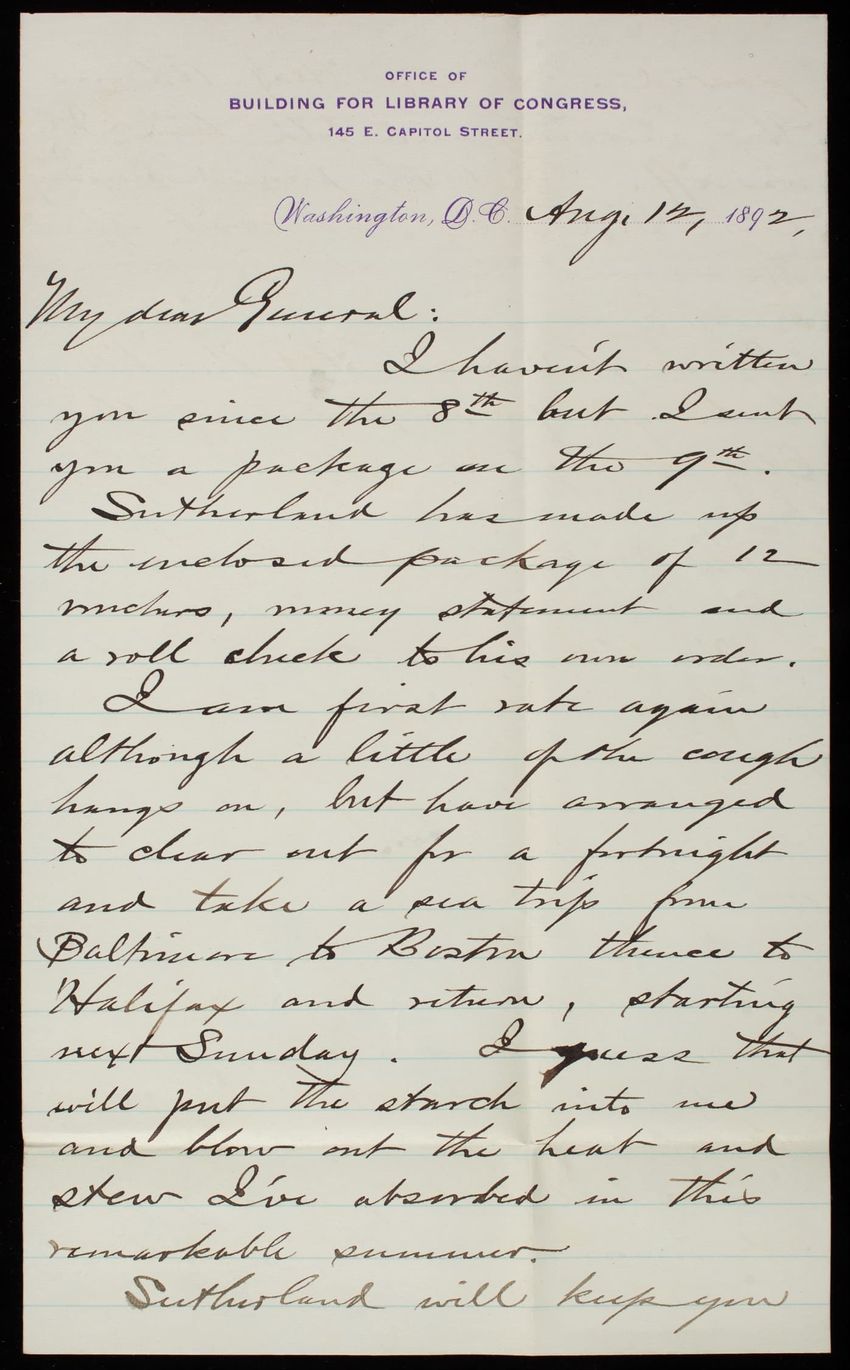 OFFICE OF
BUILDING FOR LIBRARY OF CONGRESS,
145 E. CAPITOL STREET.
Washington, D.C. Aug. 12, 1892,
My dear General:
I haven't written
you since the 8th but I sent
you a package on the 9th.
Sutherland has made up
the inclosed package of 12
vouchers, money statement and
a roll check to his own order.
I am first rate again
although a little of the cough
hangs on, but have arranged
to clear out for a fortnight
and take a sea trip from
Baltimore to Boston thence to
Halifax and return, starting
next Sunday. I guess that
will put the starch into me
and blow out the heat and
stew I've absorbed in this
remarkable summer.
Sutherland will keep you